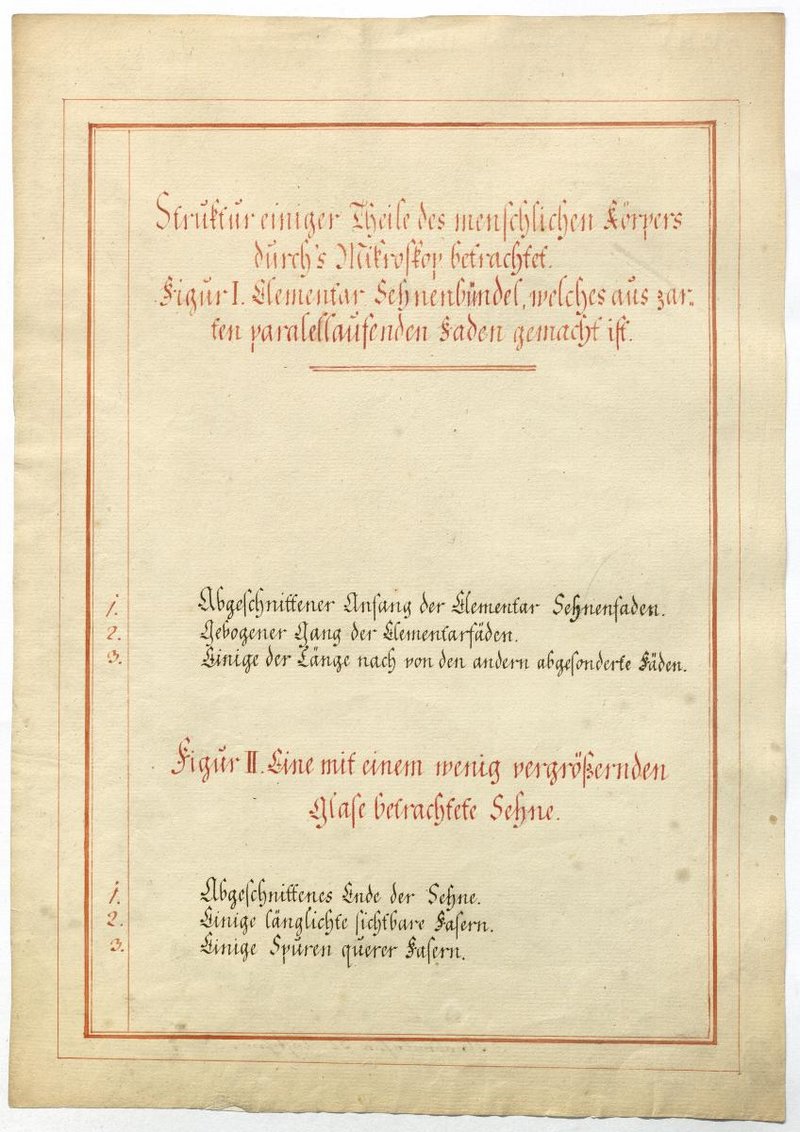 Struktur einiger Theile des menschlichen Körpers
durch's Mikroskop betrachtet.
Figur I. Elementar Sehnenbündel, welches aus zar„
ten paralellaufenden Faden gemacht ist.
1. Abgeschnittener Anfang der Elementar Sehnenfaden.
2. Gebogener Gang der Elementarfäden.
3. Einige der Länge nach von den andern abgesonderte Fäden.
Figur II. Eine mit einem wenig vergrößernden
Glase betrachtete Sehne.
1. Abgeschnittenes Ende der Sehne.
2. Einige länglichte sichtbare Fasern.
3. Einige Spuren querer Fasern.